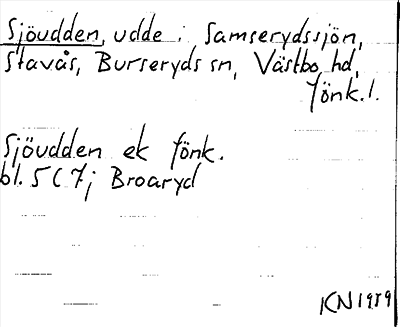 Sjöudden, udde i Samserydssjön,
Stavås, Burseryds sn, Västbo hd,
Jönk.l.
Sjöudden ek Jönk.
bl. 5C7j Broaryd
KN 1959